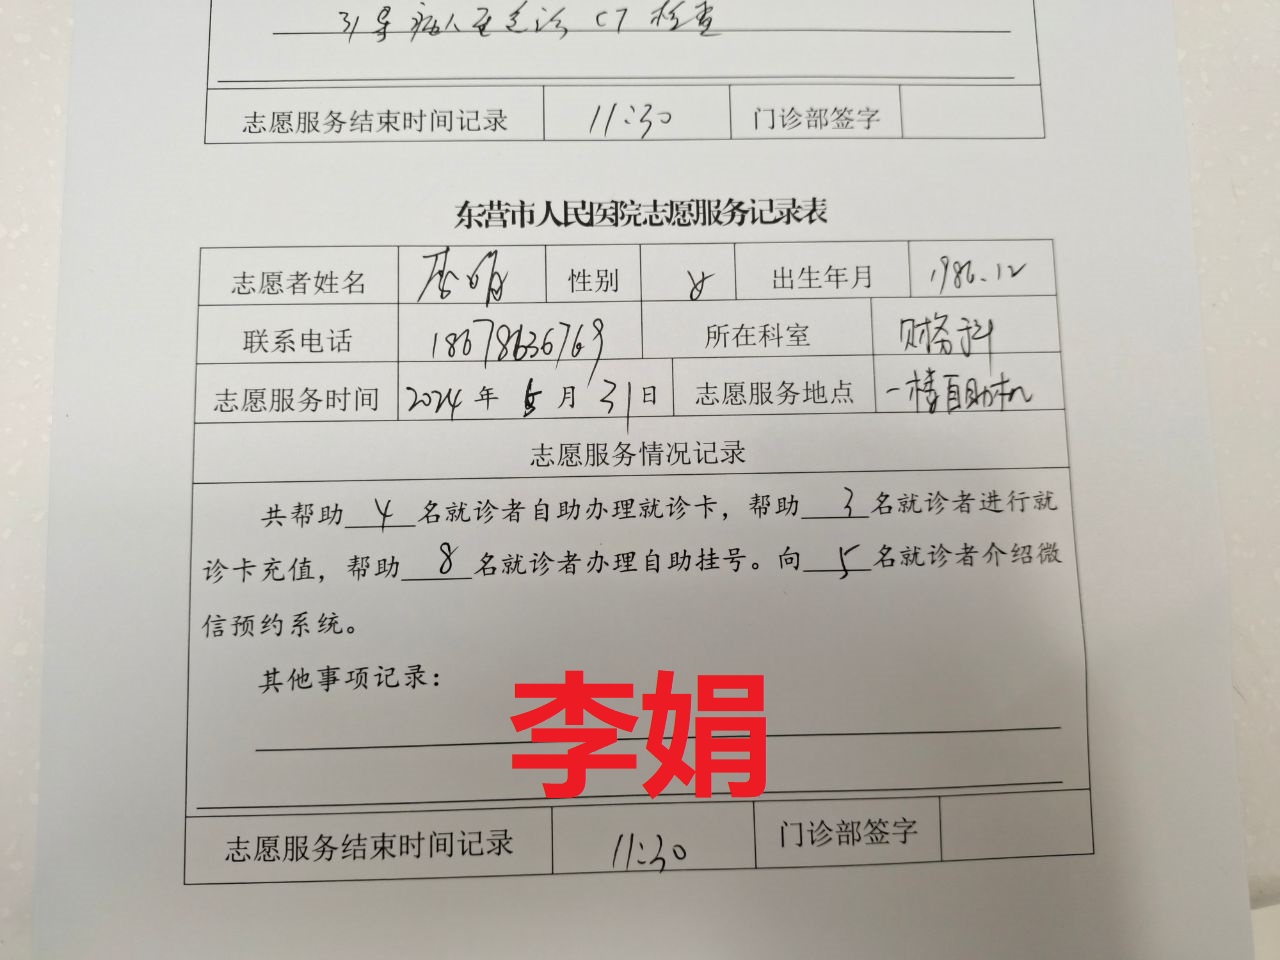 引导病人至急诊CT检查
志愿服务结束时间记录 11:30 门诊部签字
东营市人民医院志愿服务记录表
志愿者姓名 李娟 性别 女 出生年月 1986.12
联系电话 18678636769 所在科室 财务科
志愿服务时间 2024年5月31日 志愿服务地点 一楼自助机
志愿服务情况记录
共帮助4名就诊者自助办理就诊卡，帮助3名就诊者进行就
诊卡充值，帮助8名就诊者办理自助挂号。向5名就诊者介绍微
信预约系统。
其他事项记录：
李娟
志愿服务结束时间记录 11:30 门诊部签字